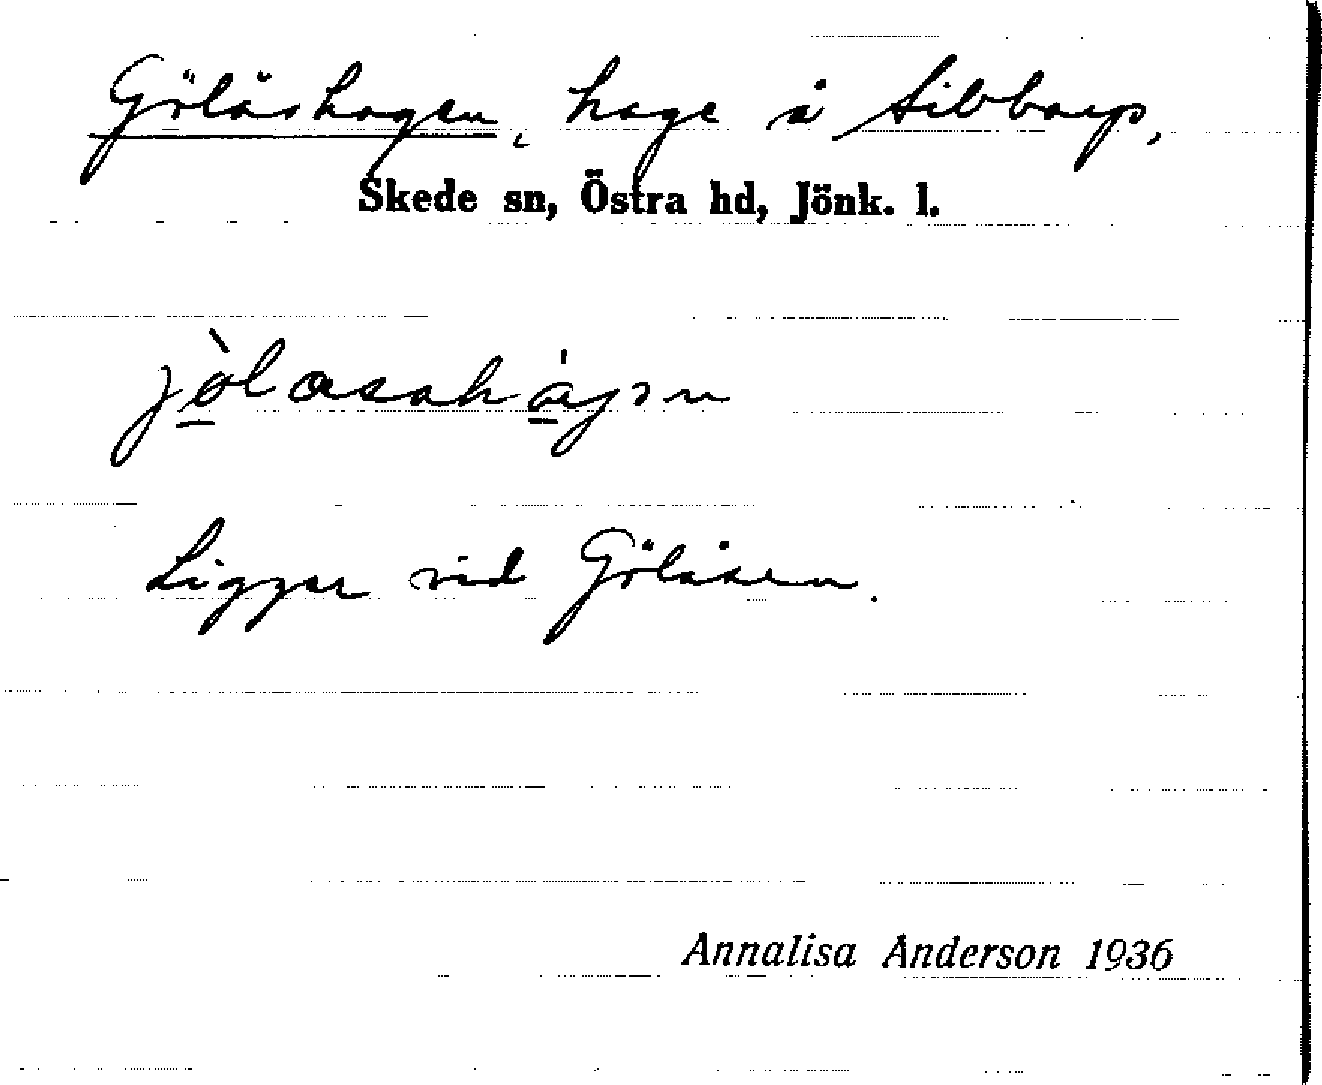 Gölåshagen, hage å Sibbarp,
Skede sn, Östra hd, Jönk. l.
jòlasahágən
Ligger vid Gölåsen.
Annalisa Anderson 1936